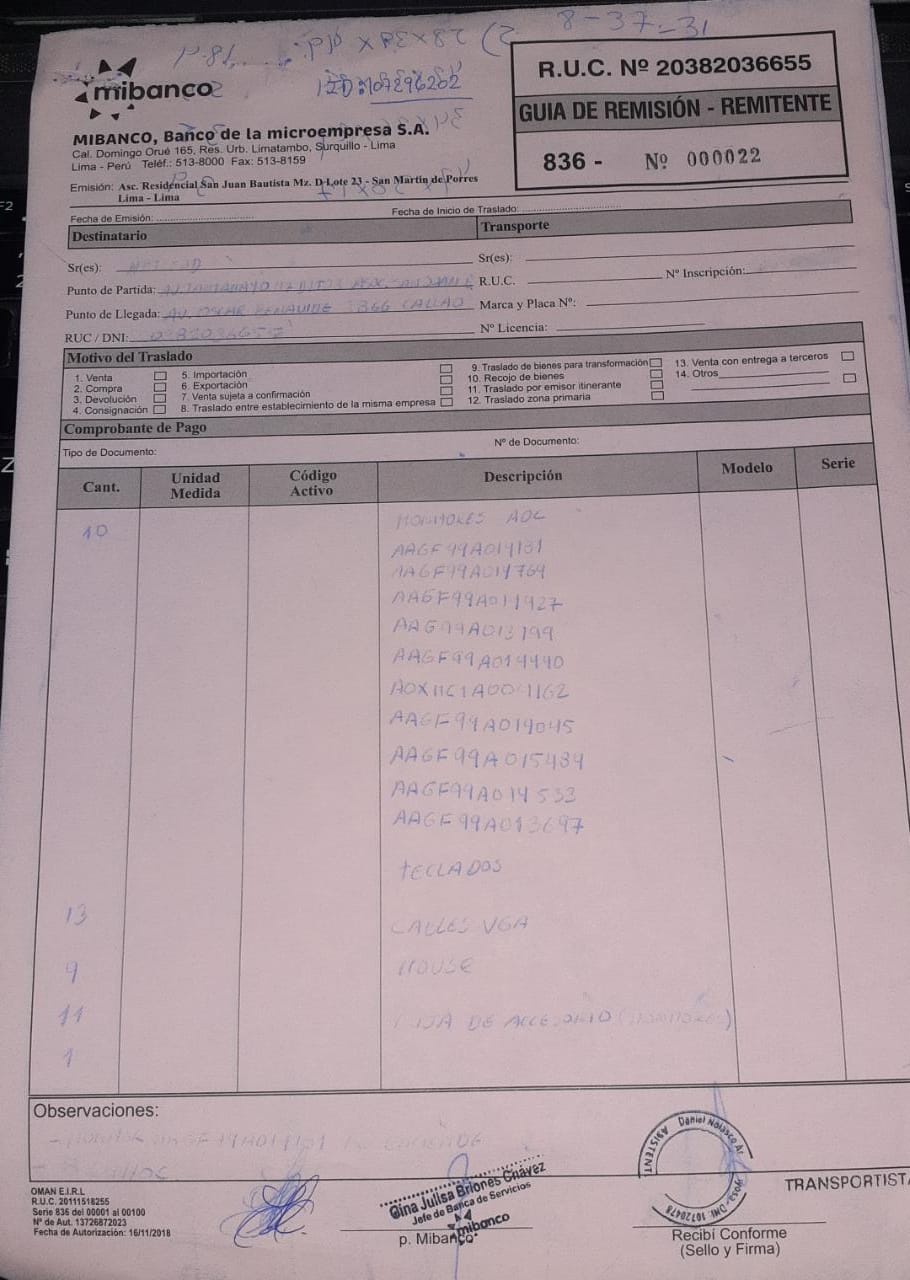 8-37-31
mibanco
MIBANCO, Banco de la microempresa S.A.
Cal. Domingo Orué 165, Res. Urb. Limatambo, Surquillo - Lima
Lima - Perú Teléf.: 513-8000 Fax: 513-8159
Emisión: Asc. Residencial San Juan Bautista Mz. D Lote 23 - San Martin de Porres
Lima - Lima
R.U.C. Nº 20382036655
GUIA DE REMISIÓN - REMITENTE
836 - Nº 000022
Fecha de Emisión:
Fecha de Inicio de Traslado:
Destinatario
Transporte
Sr(es):
Sr(es):
Punto de Partida:
R.U.C.
Nº Inscripción:
Punto de Llegada: AV. OSCAR BENAVIDES 3866 CALLAO
Marca y Placa Nº:
RUC / DNI:
Nº Licencia:
Motivo del Traslado
1. Venta
2. Compra
3. Devolución
4. Consignación
5. Importación
6. Exportación
7. Venta sujeta a confirmación
8. Traslado entre establecimiento de la misma empresa
9. Traslado de bienes para transformación
10. Recojo de bienes
11. Traslado por emisor itinerante
12. Traslado zona primaria
13. Venta con entrega a terceros
14. Otros
Comprobante de Pago
Tipo de Documento:
Nº de Documento:
Cant.
Unidad Medida
Código Activo
Descripción
Modelo
Serie
10 MONITORES AOC
AAGF99A014131
AAGF99A014764
AAGF99A011927
AAG99A013199
AAGF99A014440
AOX11C1A004162
AAGF99A014045
AAGF99A015484
AAGF99A014533
AAGF99A013697
TECLADOS
13
CABLES VGA
9
MOUSE
11
CAJA DE ACCESORIO (MONITORES)
1
Observaciones:
OMAN E.I.R.L
R.U.C. 20111518255
Serie 836 del 00001 al 00100
Nº de Aut. 13726872023
Fecha de Autorización: 16/11/2018
Gina Julisa Briones Chávez
Jefe de Banca de Servicios
mibanco
p. Mibanco
Daniel Nolasco
ASISTENT
DNI: 10720478
Recibí Conforme
(Sello y Firma)
TRANSPORTISTA